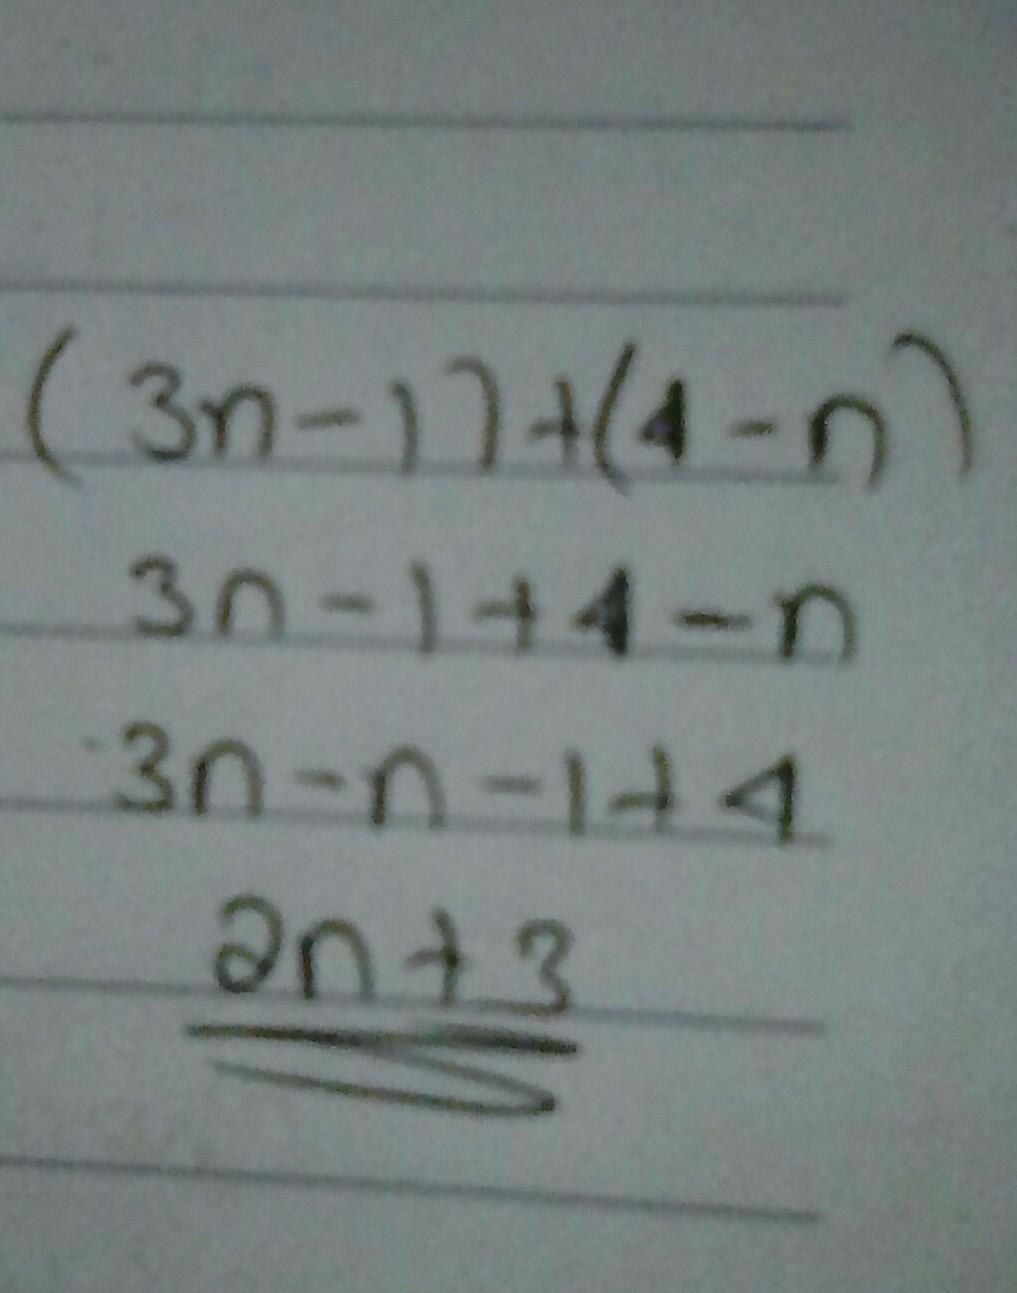 (3n-1)+(4-n)
3n-1+4-n
3n-n-1+4
2n+3